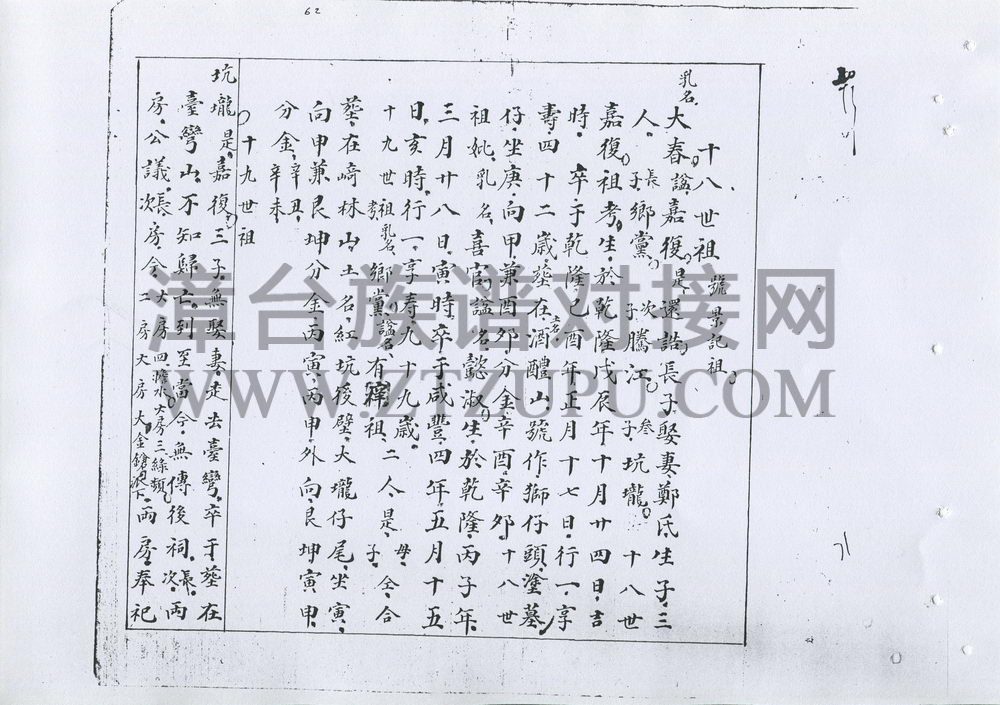 62
十八世祖 號景記祖
乳名大春謚嘉復是還誥長子娶妻鄭氏生子三
人長子鄉黨次子騰江叁子坑壠十八世
嘉復祖考生於乾隆戊辰年十月廿四日吉
時卒于乾隆己酉年正月十七日行一享
壽四十二歲塟在土名酒醴山號作獅仔頭塗墓
仔坐庚向甲兼酉夘分金辛酉辛夘十八世
祖妣乳名喜官謚名懿淑生於乾隆丙子年
三月廿八日寅時卒于咸豐四年五月十五
日亥時行一享壽九十九歲
十九世祖考乳名鄉黨謚名有祖二人是母子仝合
塟在崎林山土名紅坑後壁大壠仔尾坐寅
向申兼艮坤分金丙寅丙申外向艮坤寅申
分金辛丑辛未
十九世祖
坑壠是嘉復三子無娶妻走去臺彎卒于塟在
臺彎山不知歸亡到至當今無傳後祠長次兩
房公議長次房今大房四擔水大房三綠頭二房大房大金鎗派下兩房奉祀
71
漳台族谱对接网
WWW.ZTZUPU.COM